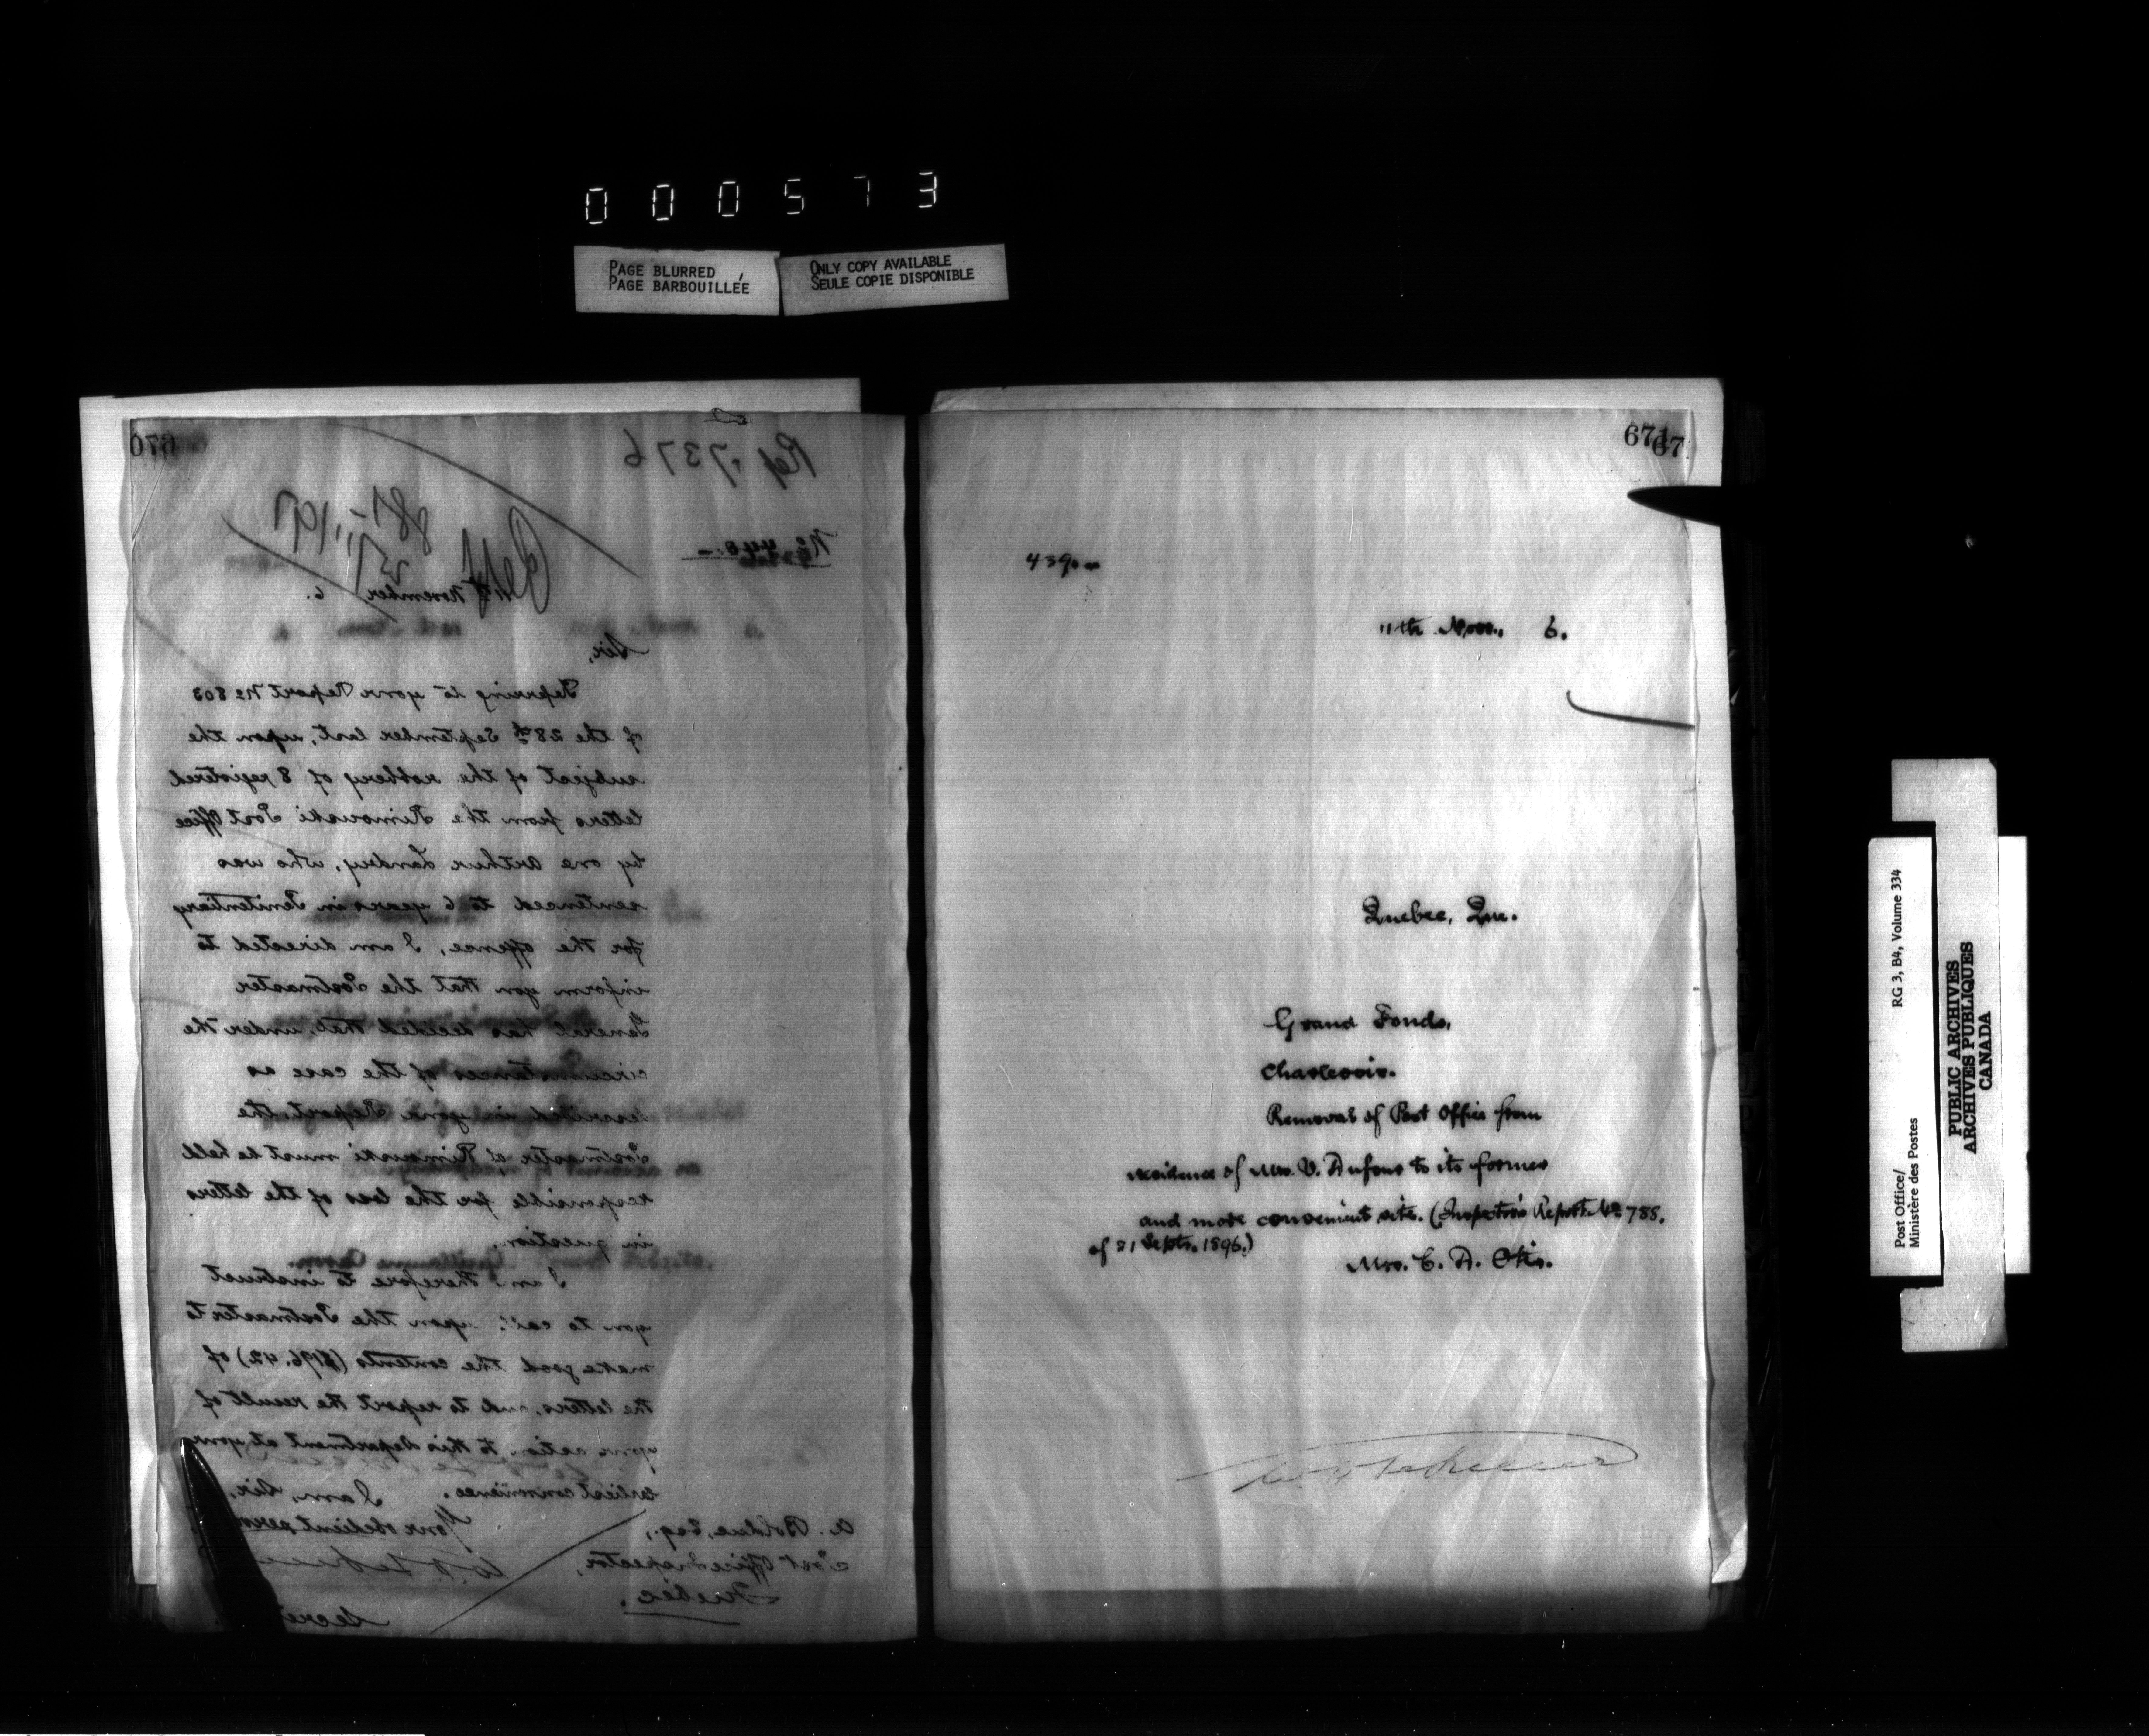 000573
PAGE BLURRED
PAGE BARBOUILLÉE
ONLY COPY AVAILABLE
SEULE COPIE DISPONIBLE
670
Ref. 7376
No 440.-
11th November 6.
Sir,
Referring to your Report No 803
of the 28th September last, upon the
subject of the robbery of 8 registered
letters from the Rimouski Post Office
by one Arthur Landry, who was
sentenced to 6 years in Penitentiary
for the offense, I am directed to
inform you that the Postmaster
General has decided that, under the
circumstances of the case as
described in your Report, the
Postmaster at Rimouski must be held
responsible for the loss of the letters
in question.
I am therefore to instruct
you to call upon the Postmaster to
make good the contents ($196.42) of
the letters, and to report the result of
your action to this Department at your
earliest convenience.
I am, Sir,
Your obedient
A. Bolduc, Esq.,
Post Office Inspector,
Quebec.
671
67
439
11th Nov., 6.
Quebec, Que.
Grand Fonds,
Charlevoix.
Removal of Post Office from
residence of Mrs. V. Dufour to its former
and more convenient site. (Inspector's Report No 788.
of 21 Septr. 1896.)
Mrs. C. A. Otis.
Post Office/
Ministère des Postes
RG 3, B4, Volume 334
PUBLIC ARCHIVES
ARCHIVES PUBLIQUES
CANADA